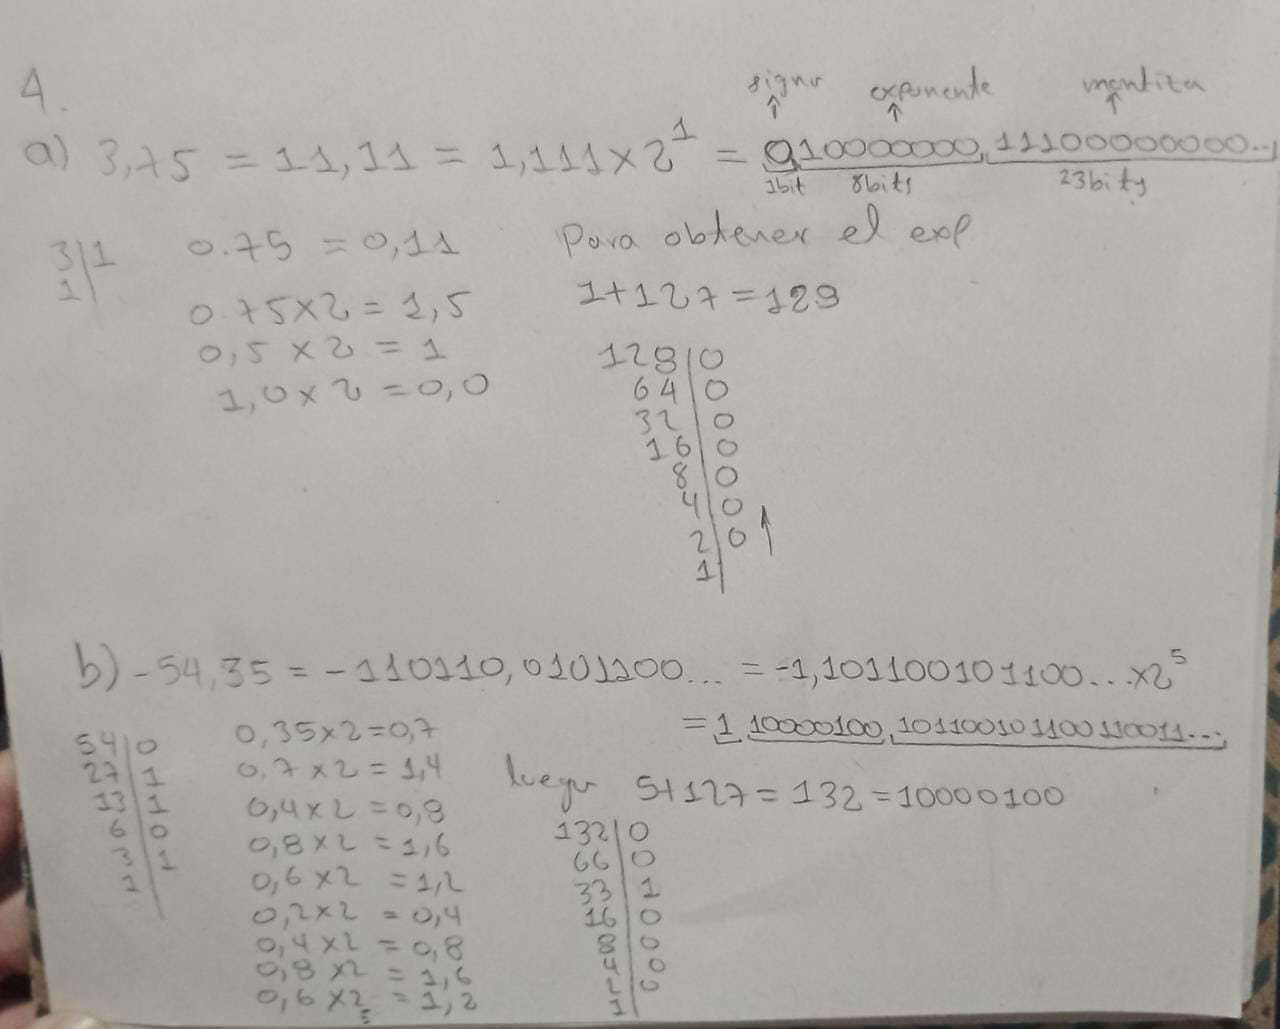 4.
signo exponente mantisa
a) 3,75 = 11,11 = 1,111 × 2^1 = 0 10000000, 11100000000...
1bit 8bits 23bits
3|1
1|
0.75 = 0,11
0.75×2 = 1,5
0,5 × 2 = 1
1,0 × 2 = 0,0
Para obtener el exp
1+127 = 128
128|0
64|0
32|0
16|0
8|0
4|0
2|0
1|
b) -54,35 = -110110,0101100... = -1,101100101100...×2^5
= 1 10000100, 10110010110011001 1...
54|0
27|1
13|1
6|0
3|1
1
0,35×2=0,7
0,7 × 2 = 1,4
0,4×2 = 0,8
0,8 × 2 = 1,6
0,6 × 2 = 1,2
0,2×2 = 0,4
0,4 × 2 = 0,8
0,8 × 2 = 1,6
0,6 × 2 = 1,2
luego 5+127 = 132 = 10000100
132|0
66|0
33|1
16|0
8|0
4|0
2|0
1|